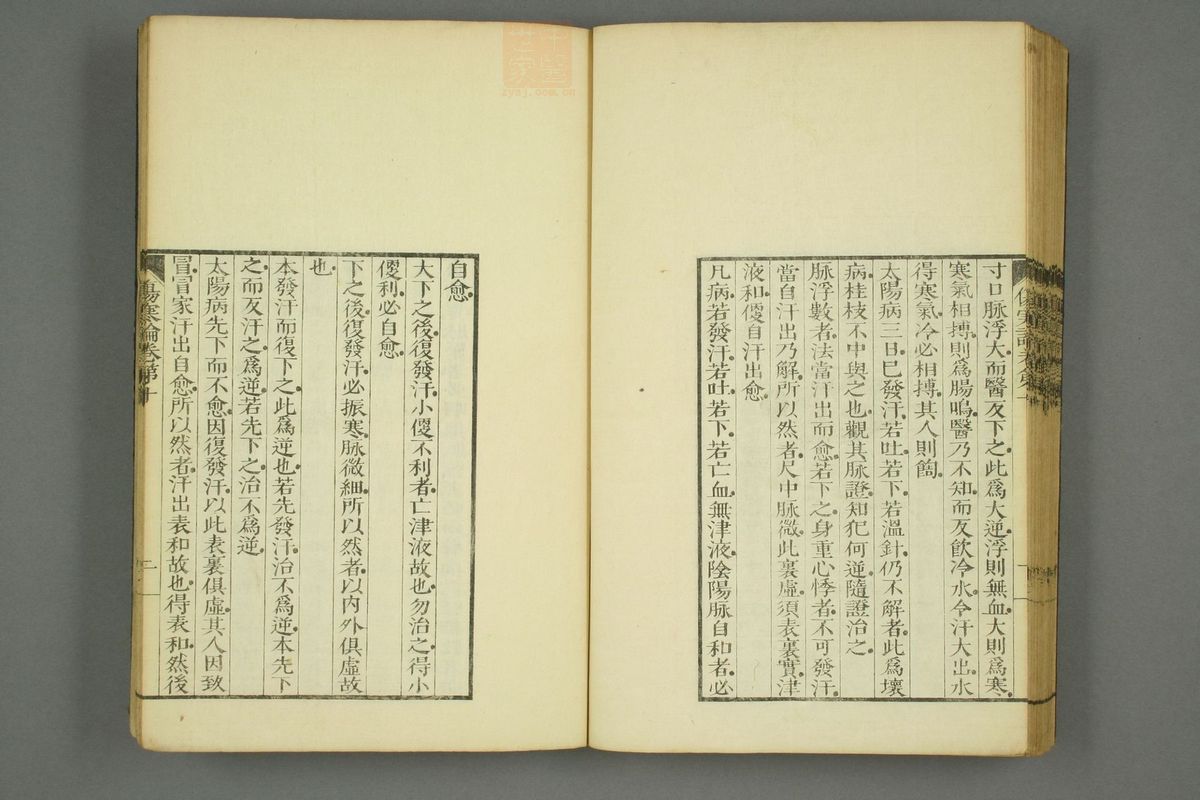 寸口脉浮大而醫反下之此爲大逆浮則無血大則爲寒
寒氣相搏則爲腸鳴醫乃不知而反飲冷水令汗大出水
得寒氣冷必相搏其人則䭇
太陽病三日巳發汗若吐若下若溫針仍不解者此爲壞
病桂枝不中與之也觀其脉證知犯何逆隨證治之
脉浮數者法當汗出而愈若下之身重心悸者不可發汗
當自汗出乃解所以然者尺中脉微此裏虛須表裏實津
液和便自汗出愈
凡病若發汗若吐若下若亡血無津液陰陽脉自和者必
自愈
大下之後復發汗小便不利者亡津液故也勿治之得小
便利必自愈
下之後復發汗必振寒脉微細所以然者以内外俱虛故
也
本發汗而復下之此爲逆也若先發汗治不爲逆本先下
之而反汗之爲逆若先下之治不爲逆
太陽病先下而不愈因復發汗以此表裏俱虛其人因致
冒冒家汗出自愈所以然者汗出表和故也得表和然後
傷寒論卷第十
中醫世家
zysj.com.cn